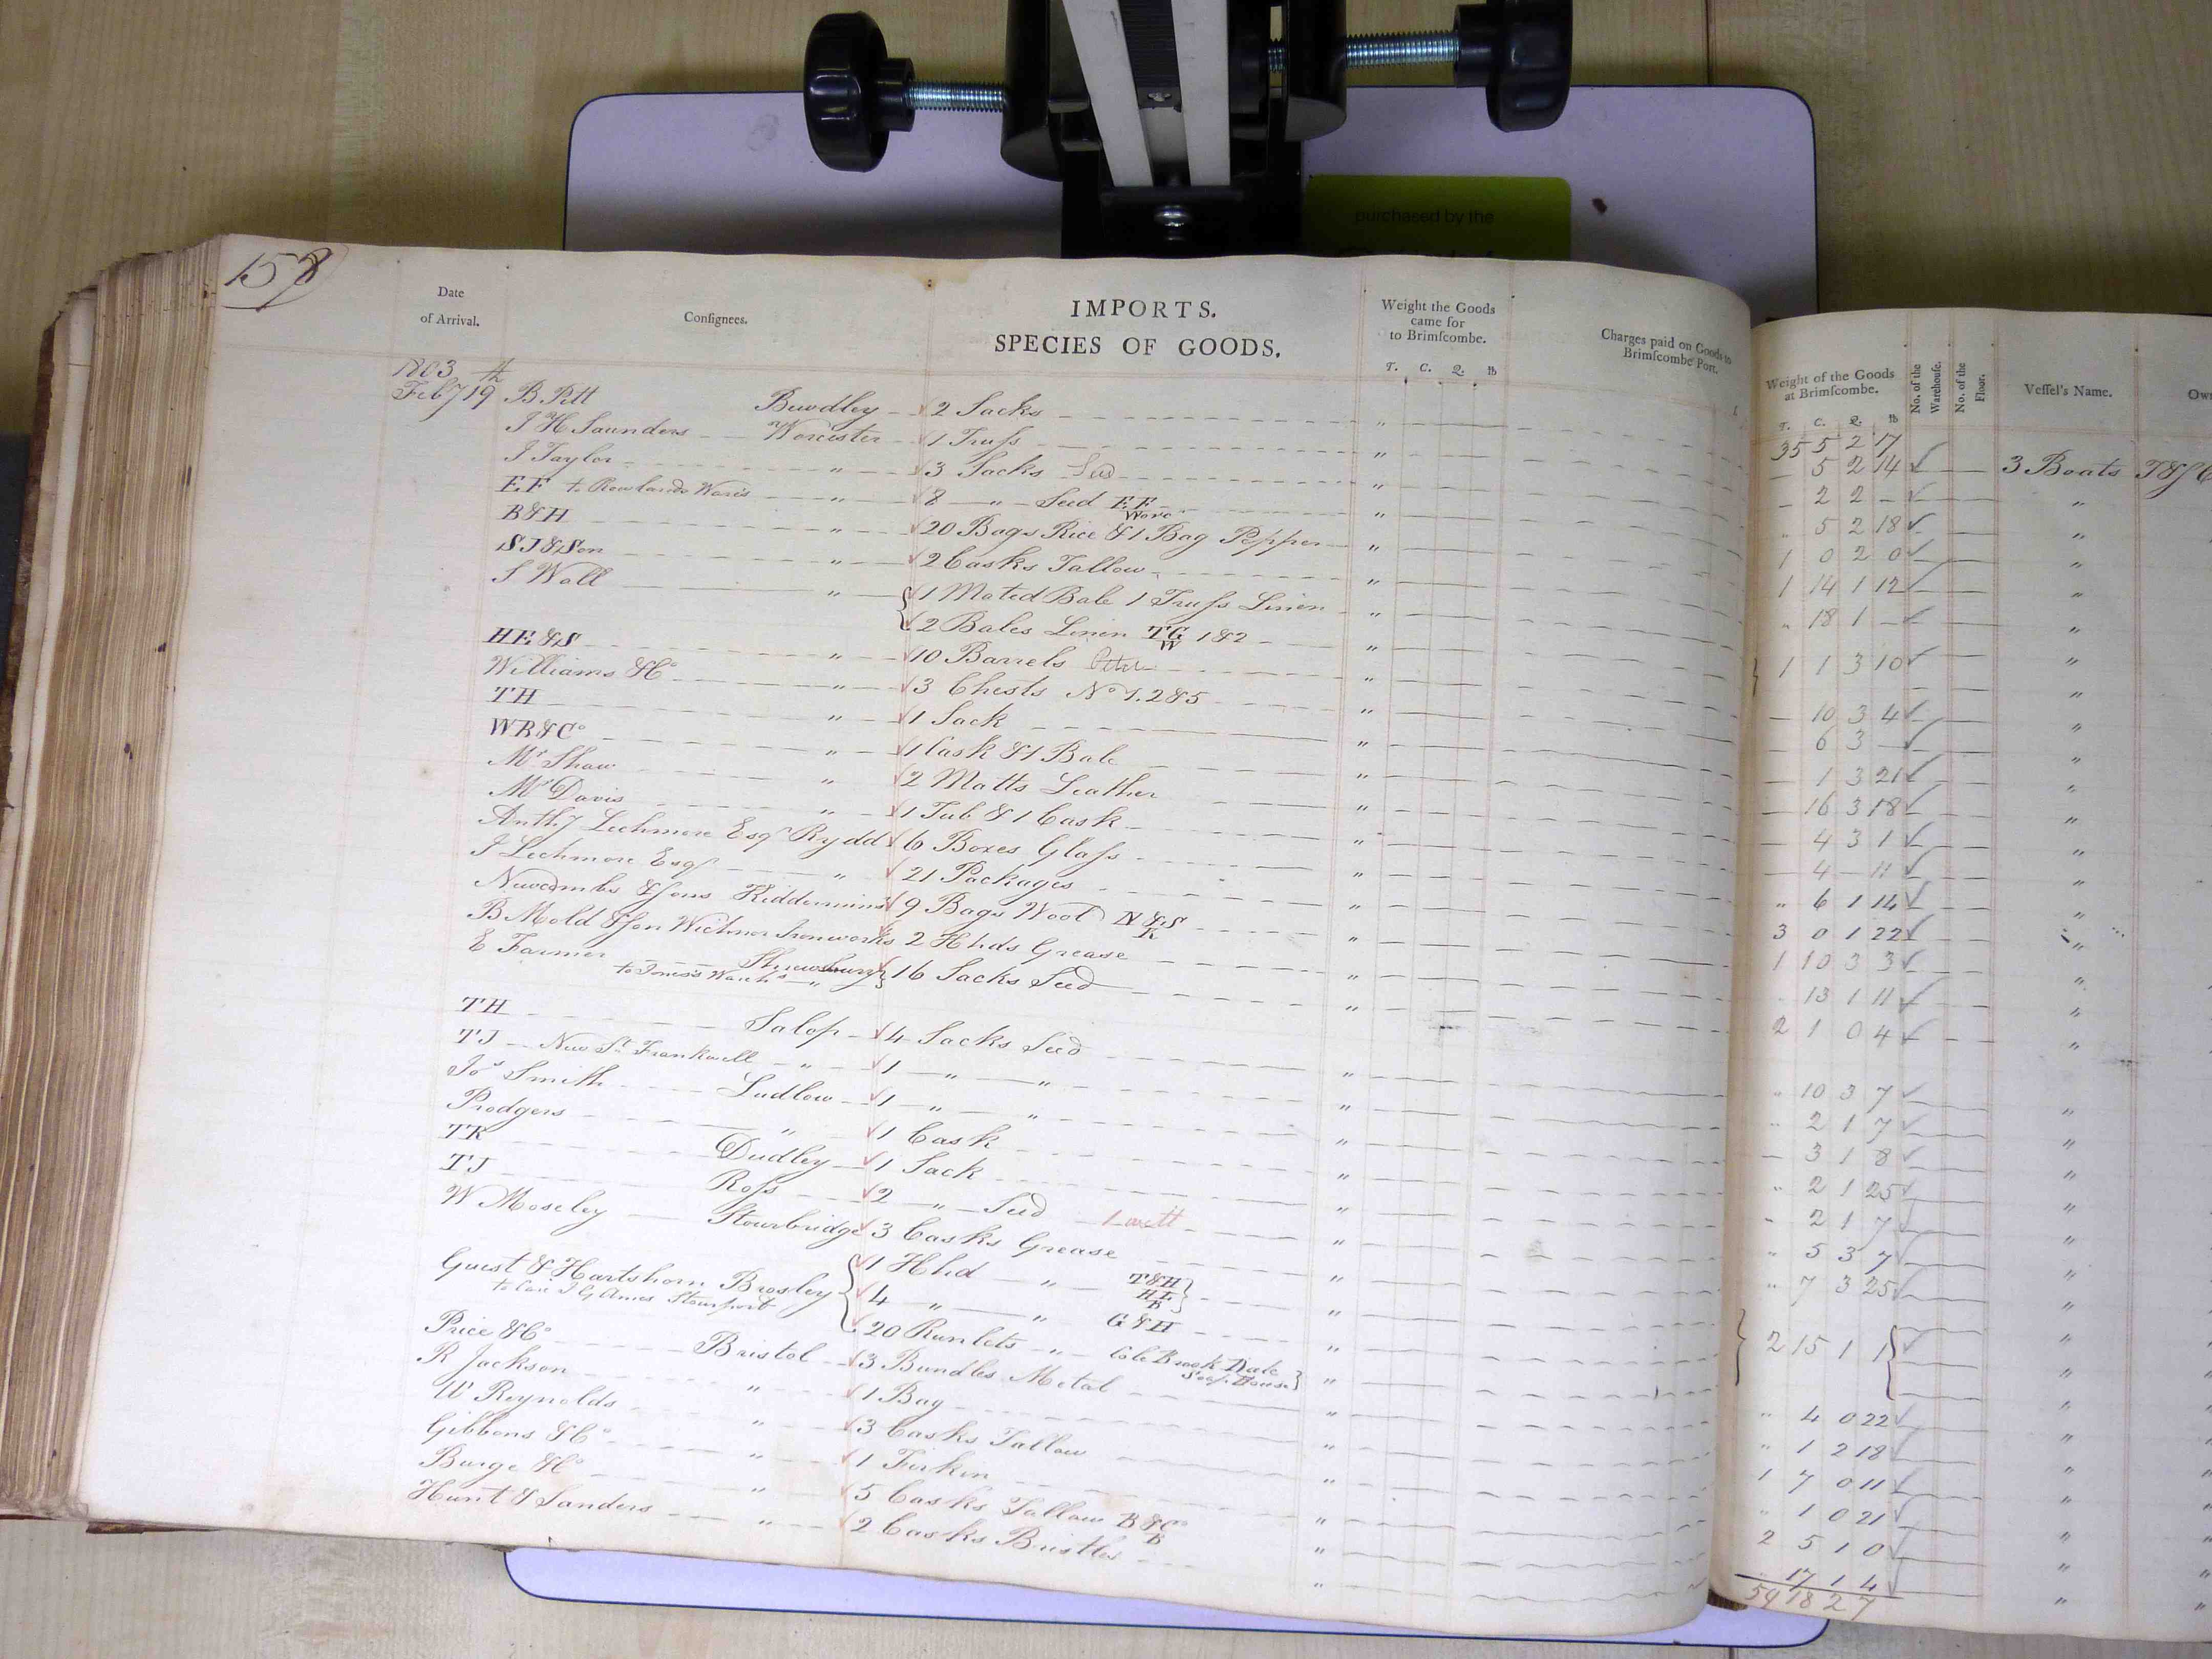 purchased by the
158
Date
of Arrival.
Consignees.
IMPORTS.
SPECIES OF GOODS.
Weight the Goods
came for
to Brimscombe.
T. C. Q. lb
Charges paid on Goods to
Brimscombe Port.
Weight of the Goods
at Brimscombe.
T. C. Q. lb
No. of the
Warehouse.
No. of the
Floor.
Vessel's Name.
1803
35 5 2 17
Feby 19th B Pitt Bewdley 2 Sacks " 5 2 14 3 Boats
J H Saunders Worcester 1 Truss " 2 2 - "
J Taylor " 3 Sacks Seed " 5 2 18 "
EF to Rowlands Wario " 8 " Seed EF Worc " 1 0 2 0 "
B&H " 20 Bags Rice & 1 Bag Pepper " 1 14 1 12 "
SJ&Son " 2 Casks Tallow " 18 1 - "
S Wall " 1 Mated Bale 1 Truss Linen " 1 1 3 10 "
2 Bales Linen TG W 1&2 " "
HE&S " 10 Barrels " 10 3 4 "
Williams & Co " 3 Chests No 1. 2 & 5 " 6 3 - "
TH " 1 Sack " 1 3 21 "
WB&Co " 1 Cask & 1 Bale " 16 3 18 "
Mr Shaw " 2 Matts Leather " 4 3 1 "
Mr Davis " 1 Tub & 1 Cask " 4 - 11 "
Anthy Lechmere Esqr Rydd 6 Boxes Glass " 6 1 14 "
J Lechmore Esqr " 21 Packages " 3 0 1 22 "
Newcombs & Sons Kidderminst 9 Bags Wool N&S K " 1 10 3 3 "
B Mold & Son Wichnor Ironworks 2 Hhds Grease " 13 1 11 "
E Farmer Shrewsbury 16 Sacks Seed " 2 1 0 4 "
to Jones's Wareh "
TH Salop 4 Sacks Seed " 10 3 7 "
TJ New St Frankwell " 1 " " " 2 1 7 "
Jos Smith Ludlow 1 " " " 3 1 8 "
Prodgers " 1 Cask " 2 1 25 "
TK Dudley 1 Sack " 2 1 7 "
TJ Ross 2 " Seed 1 " 5 3 7 "
W Moseley Stourbridge 3 Casks Grease " 7 3 25 "
Guest & Hartshorn Brosley 1 Hhd " T&H " 2 15 1 1 "
to Care J G Ames Stourport 4 " " HE B "
20 Runlets " G&H "
Cole Brook Dale
Soap House
Price & Co Bristol 3 Bundles Metal " 4 0 22 "
R Jackson " 1 Bag " 1 2 18 "
W Reynolds " 3 Casks Tallow " 1 7 0 11 "
Gibbons & Co " 1 Firkin " 1 0 21 "
Burge & Co " 5 Casks Tallow B&Co B " 2 5 1 0 "
Hunt & Sanders " 2 Casks Bristles " 17 1 4 "
59 18 2 7